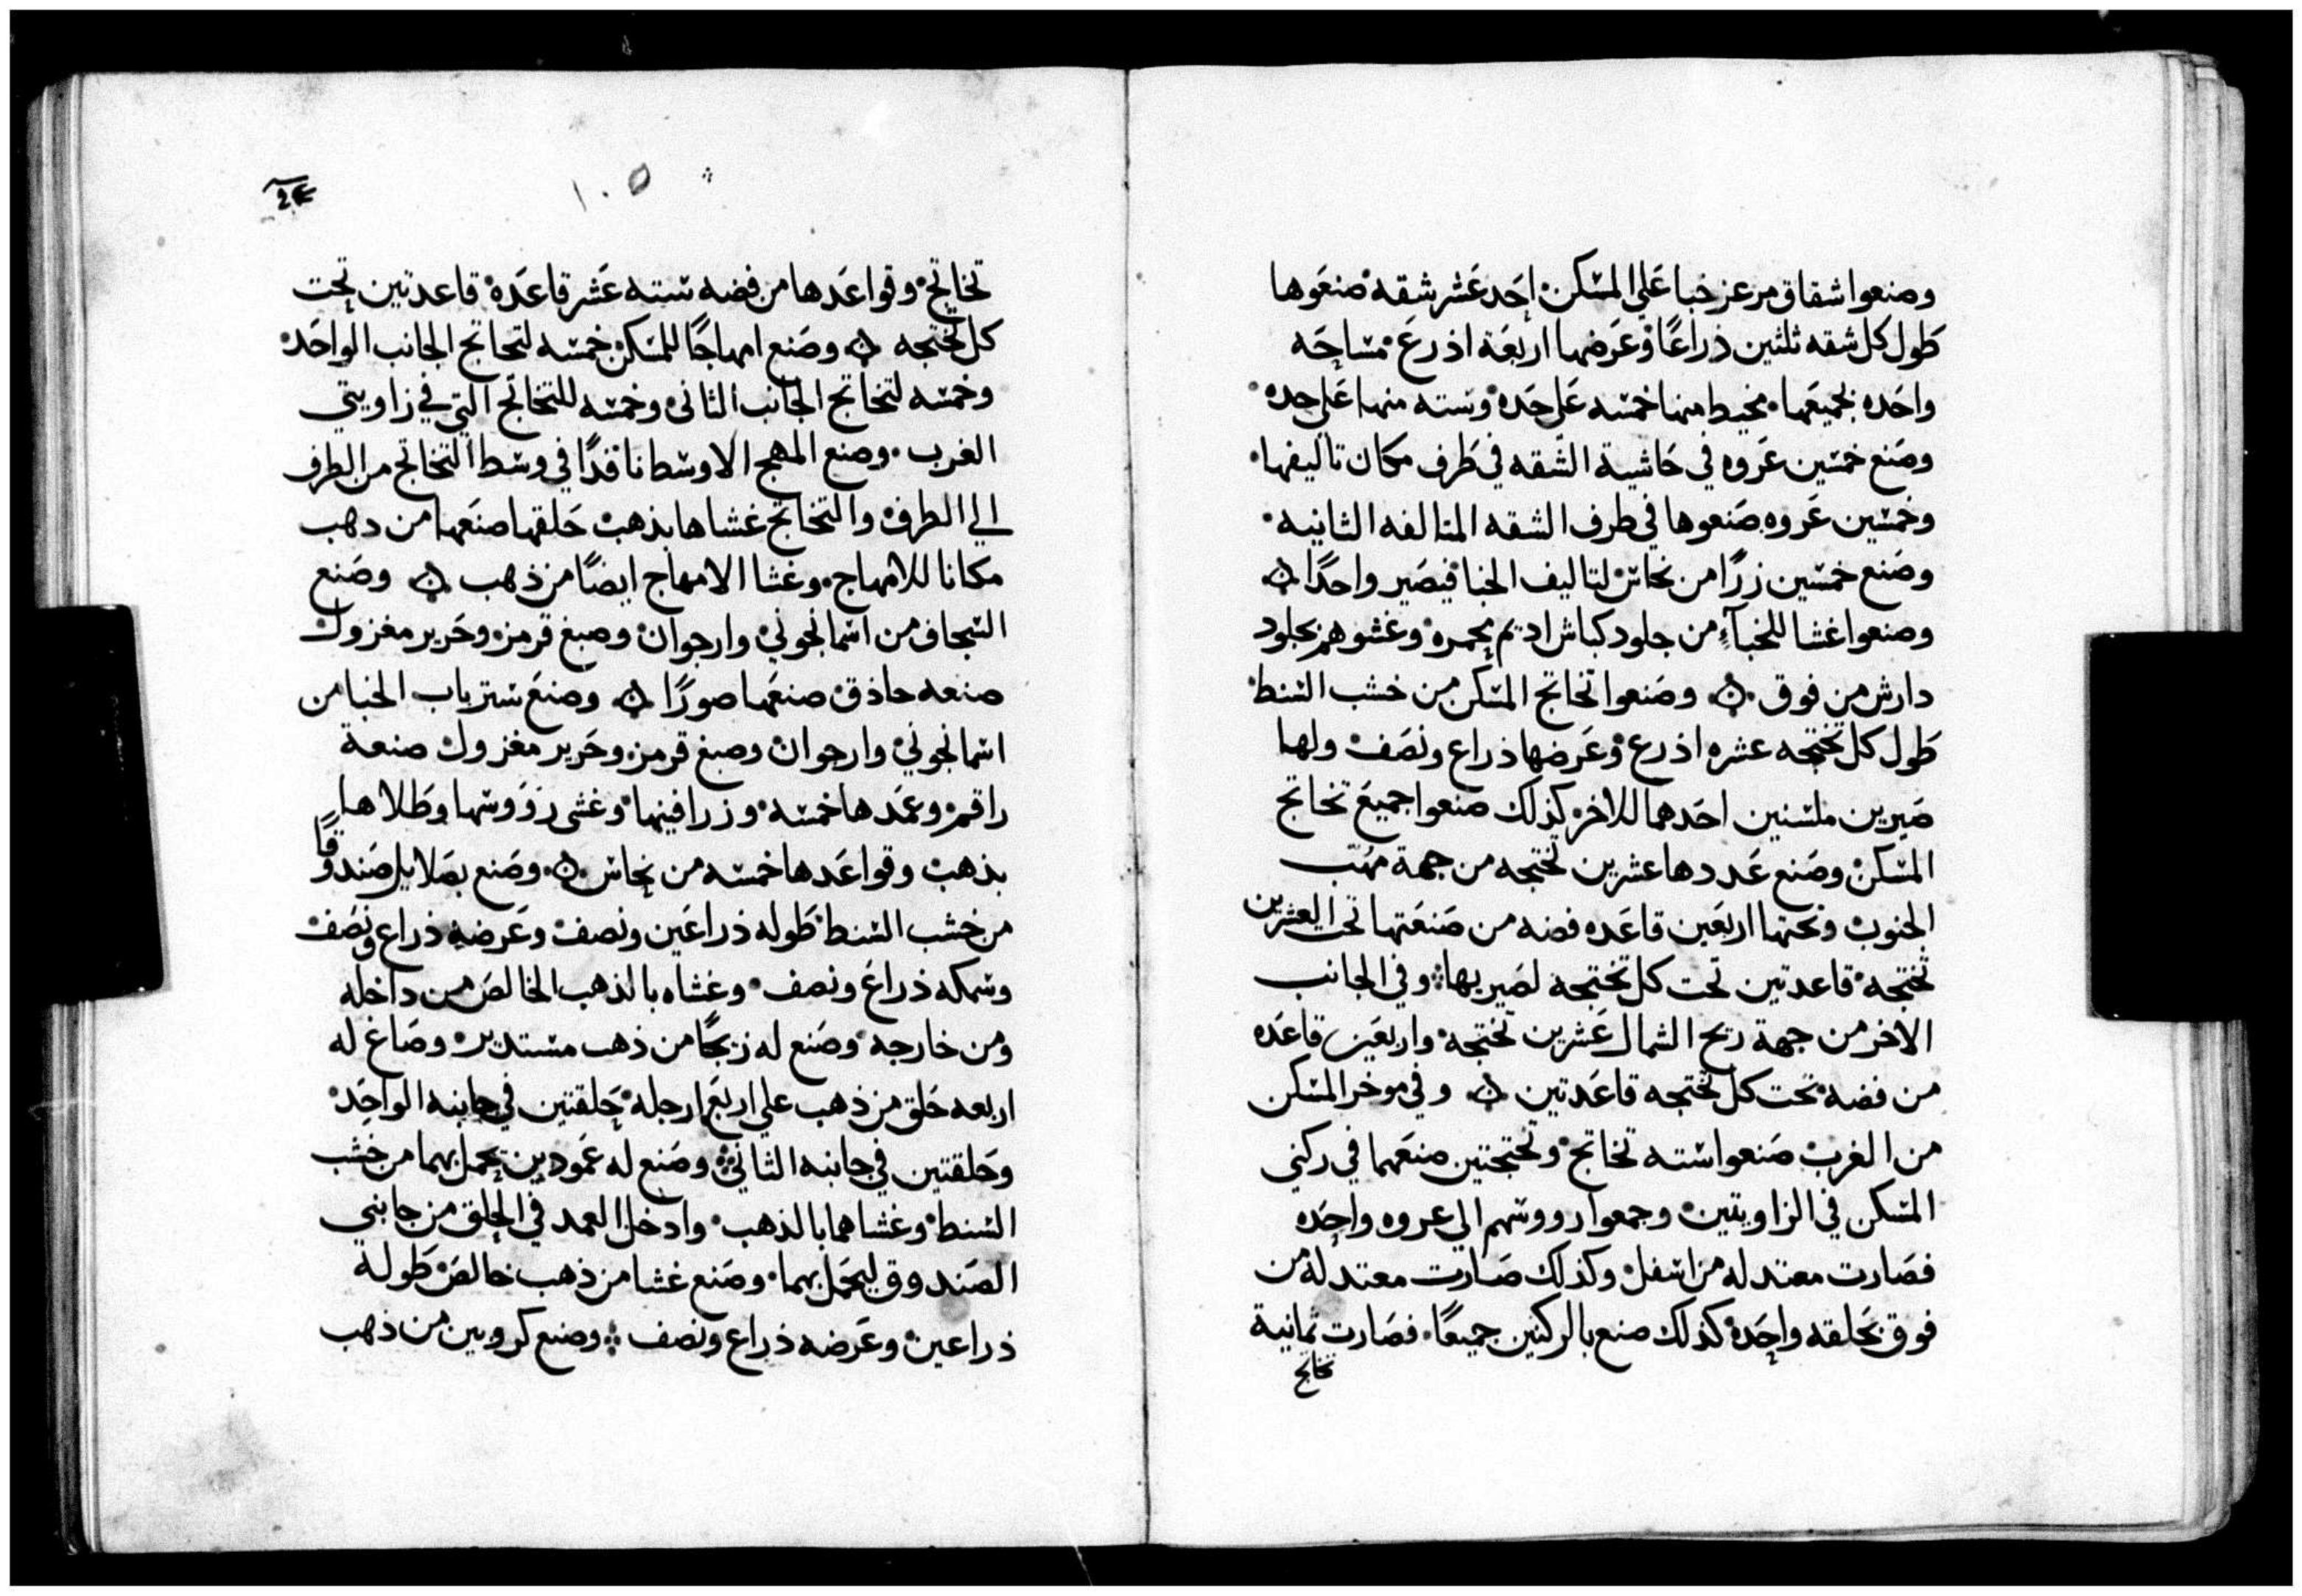 وصنعوا شقاق مرعز خبا علي المسكن احد عشر شقه صنعوها
طول كل شقه ثلثين ذراعًا وعرضها اربعة اذرع مساحه
واحده لجميعها مخيط منها خمسه علي حده وسته منها علي حده
وصنع خمسين عروه في حاشية الشقه في طرف مكان تاليفها
وخمسين عروه صنعوها في طرف الشقه المتالفه الثانيه
وصنع خمسين زرًا من نحاس لتاليف الخبا فيصير واحدًا
وصنعوا غشا للخبآء من جلود كباش اديم محمره وغشوهم بجلود
دارش من فوق وصنعوا تخاتج المسكن من خشب السنط
طول كل تختجه عشره اذرع وعرضها ذراع ونصف ولها
صيرين ملسنين احدهما للاخر كذلك صنعوا جميع تخاتج
المسكن وصنع عددها عشرين تختجه من جهة مهب
الجنوب وتحتها اربعين قاعده فضه من صنعتها تحت العشرين
تختجه قاعدتين تحت كل تختجه لصيريها وفي الجانب
الاخر من جهة ريح الشمال عشرين تختجه واربعين قاعده
من فضه تحت كل تختجه قاعدتين وفي موخر المسكن
من الغرب صنعوا سته تخاتج وتختجتين صنعهما في ركني
المسكن في الزاويتين وجمعوا رووسهم الي عروه واحده
فصارت معتدله من اسفل وكذلك صارت معتدله من
فوق بحلقه واحده كذلك صنع بالركنين جميعًا فصارت ثمانية
تخاتج
١٠٥
تخاتج وقواعدها من فضه سته عشر قاعده قاعدتين تحت
كل تختجه وصنع امهاجًا للمسكن خمسه لتخاتج الجانب الواحد
وخمسه لتخاتج الجانب الثاني وخمسه للتخاتج التي في زاويتي
الغرب وصنع المهج الاوسط نافدًا في وسط التخاتج من الطرف
الي الطرف والتخاتج غشاها بذهب حلقها صنعها من دهب
مكانا للامهاج وغشا الامهاج ايضًا من ذهب وصنع
السجاف من اسمانجوني وارجوان وصبغ قرمز وحرير مغزول
صنعه حاذق صنعها صورًا وصنع ستر باب الخبا من
اسمانجوني وارجوان وصبغ قرمز وحرير مغزول صنعة
راقم وعمدها خمسه وزرافينها وغشى رؤوسها وطلاها
بذهب وقواعدها خمسه من نحاس وصنع بصلايل صندوقًا
من خشب السنط طوله ذراعين ونصف وعرضه ذراع ونصف
وسمكه ذراع ونصف وغشاه بالذهب الخالص من داخله
ومن خارجه وصنع له زيجًا من ذهب مستدير وصاغ له
اربعه حلق من ذهب علي اربع ارجله حلقتين في جانبه الواحد
وحلقتين في جانبه الثاني وصنع له عمودين يحمل بهما من خشب
السنط وغشاهما بالذهب وادخل العمد في الحلق من جانبي
الصندوق ليحمل بهما وصنع غشا من ذهب خالص طوله
ذراعين وعرضه ذراع ونصف وصنع كروبين من ذهب